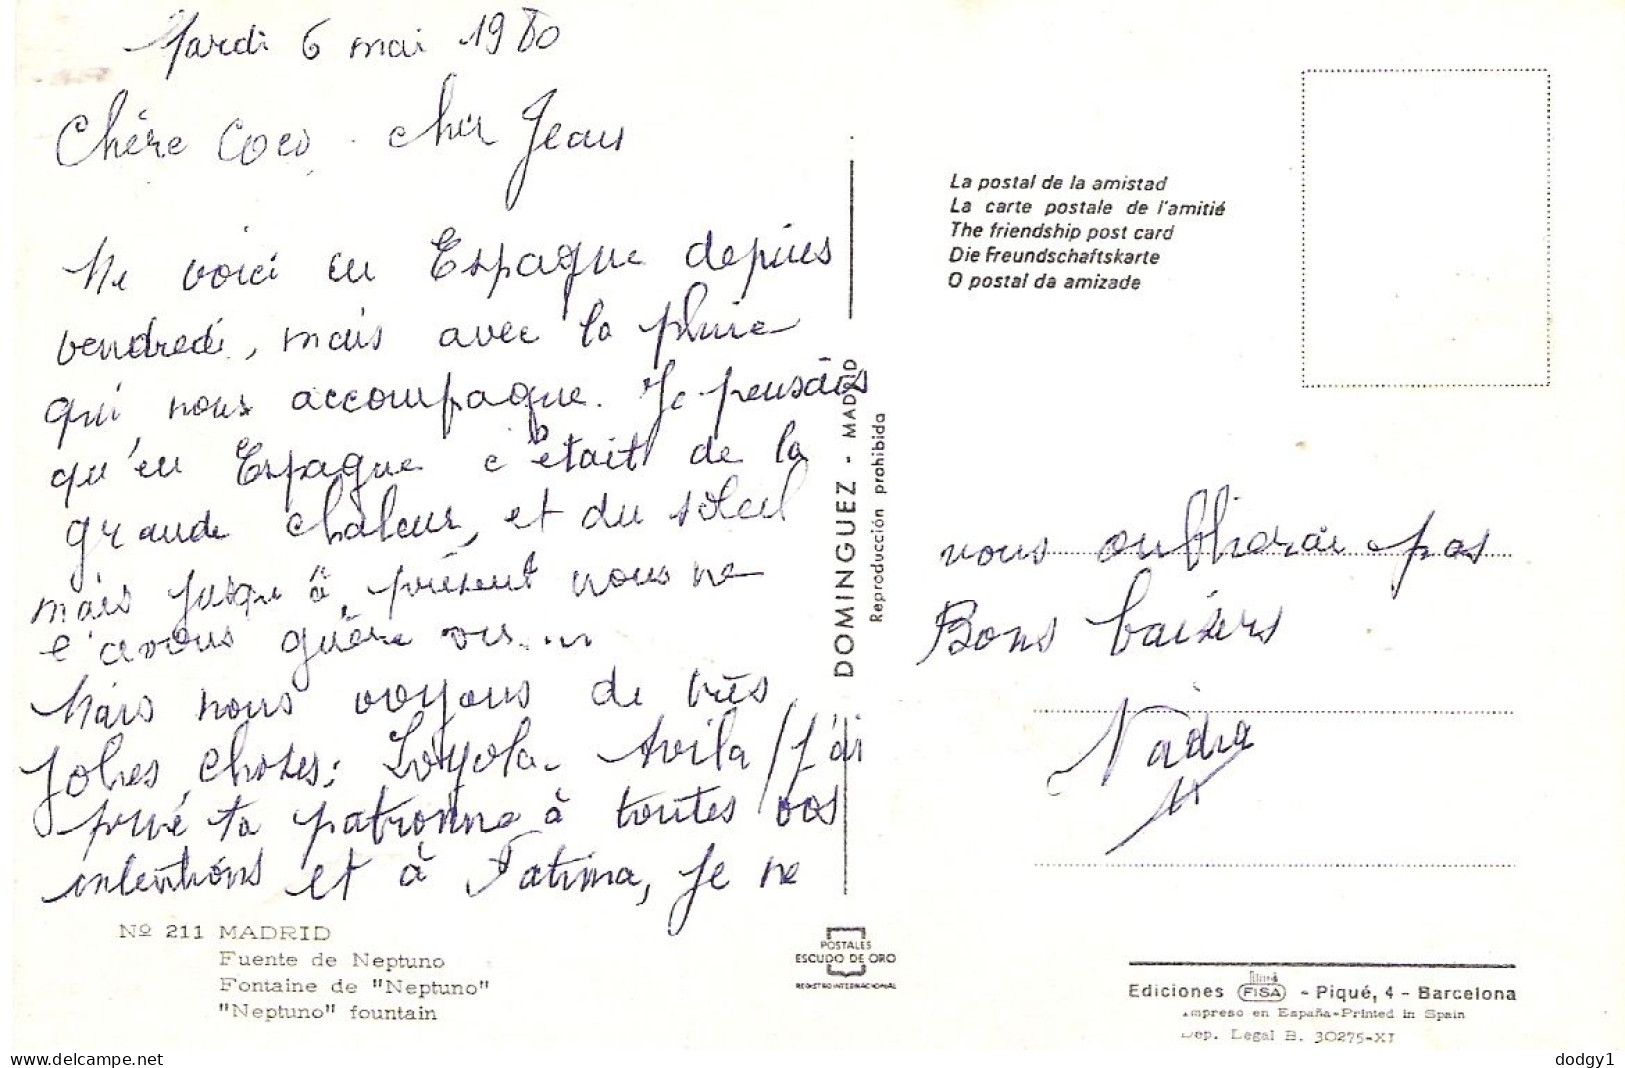 Mardi 6 mai 1980
Chère Coco. cher Jean
Me voici en Espagne depuis
vendredi, mais avec la pluie
qui nous accompagne. Je pensais
qu'en Espagne c'était de la
grande chaleur, et du soleil
mais jusqu'à présent nous ne
l'avons guère vu...
Mais nous voyons de très
jolies choses: Loyola. Avila / j'ai
prié ta patronne à toutes vos
intentions et à Fatima, je ne
Nº 211 MADRID
Fuente de Neptuno
Fontaine de "Neptuno"
"Neptuno" fountain
DOMINGUEZ - MADRID
Reproducción prohibida
POSTALES
ESCUDO DE ORO
REGISTRO INTERNACIONAL
La postal de la amistad
La carte postale de l'amitié
The friendship post card
Die Freundschaftskarte
O postal da amizade
vous oublierai pas
Bons baisers
Nadia
Ediciones FISA - Piqué, 4 - Barcelona
Impreso en España-Printed in Spain
Dep. Legal B. 30275-XI
dodgy1